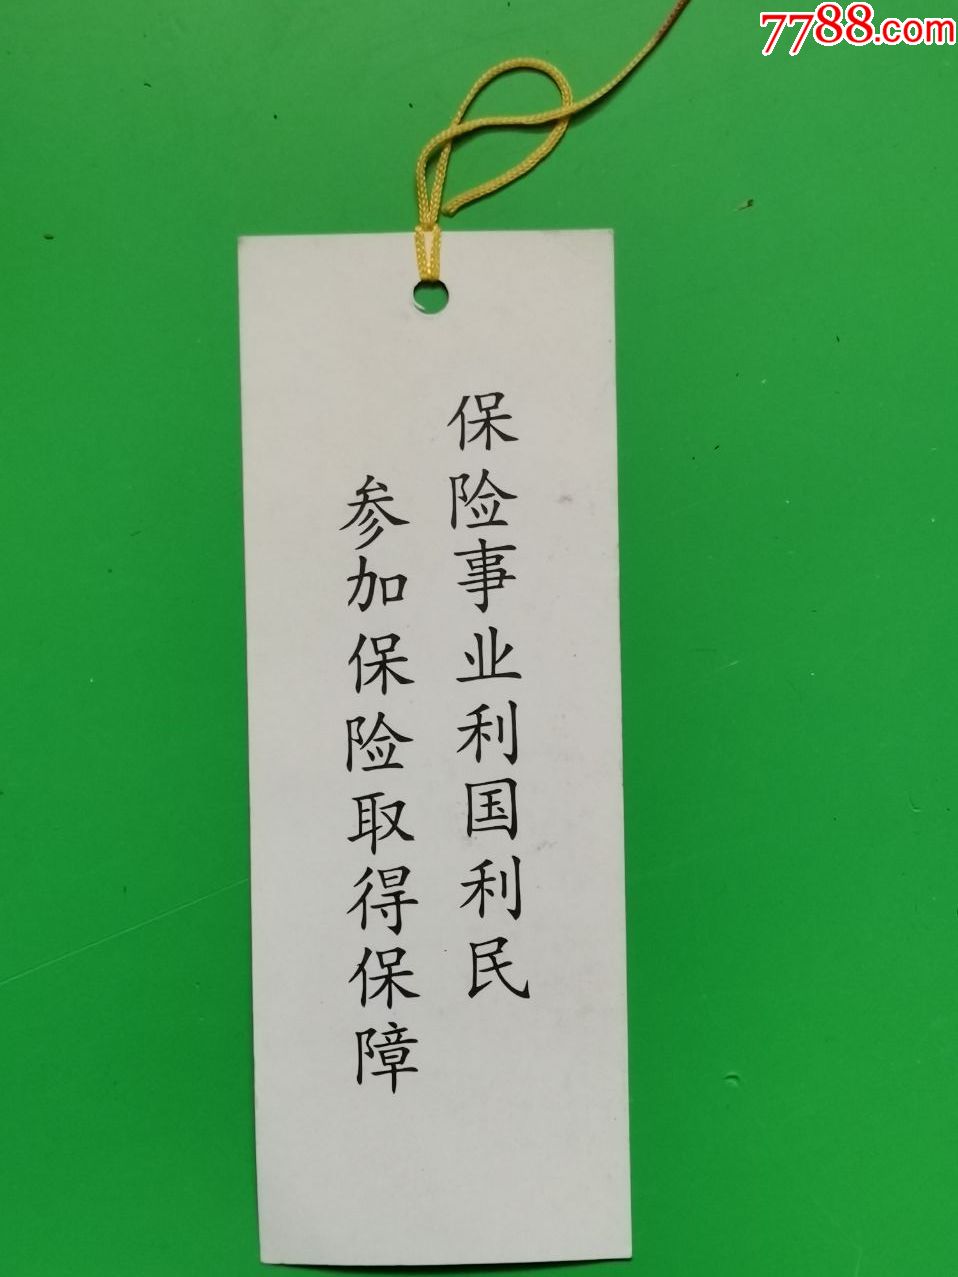 7788.com
保险事业利国利民
参加保险取得保障